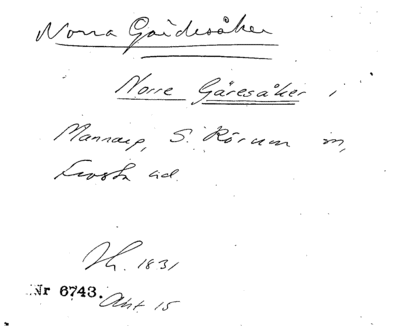 Norra Gårdesåker
Norre Gåresåker i
Mannarp, S. Rörum sn,
Frosta hd.
Sk. 1831
Nr 6743.
Akt 15